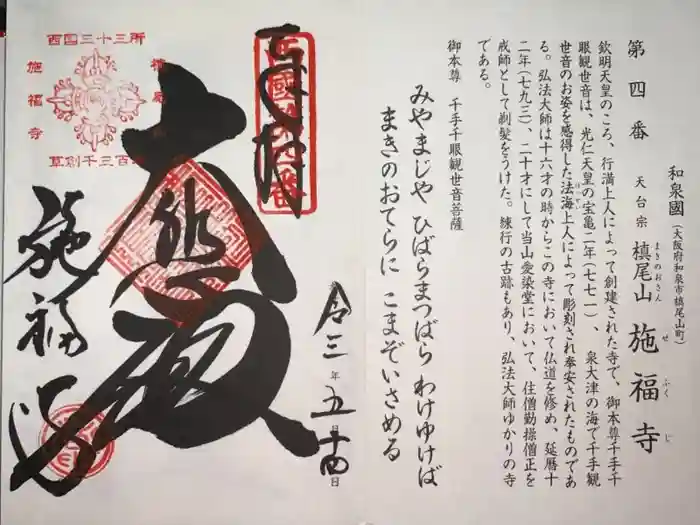 和泉國(大阪府和泉市槙尾山町)
第四番 天台宗 槙尾山 施福寺
まきのおさん せふくじ
欽明天皇のころ、行満上人によって創建された寺で、御本尊千手千
眼観世音は、光仁天皇の宝亀二年(七七一)、泉大津の海で千手観
世音のお姿を感得した法海上人によって彫刻され奉安されたものであ
る。弘法大師は十六才の時からこの寺において仏道を修め、延暦十
二年(七九三)、二十才にして当山愛染堂において、住僧勤操僧正を
戒師として剃髪をうけた。練行の古跡もあり、弘法大師ゆかりの寺
である。
御本尊 千手千眼観世音菩薩
みやまじや ひばらまつばら わけゆけば
まきのおてらに こまぞいさめる
西國第四番
令三年五月十四日
大悲殿
施福寺
西国三十三所
施福寺
草創千三百年